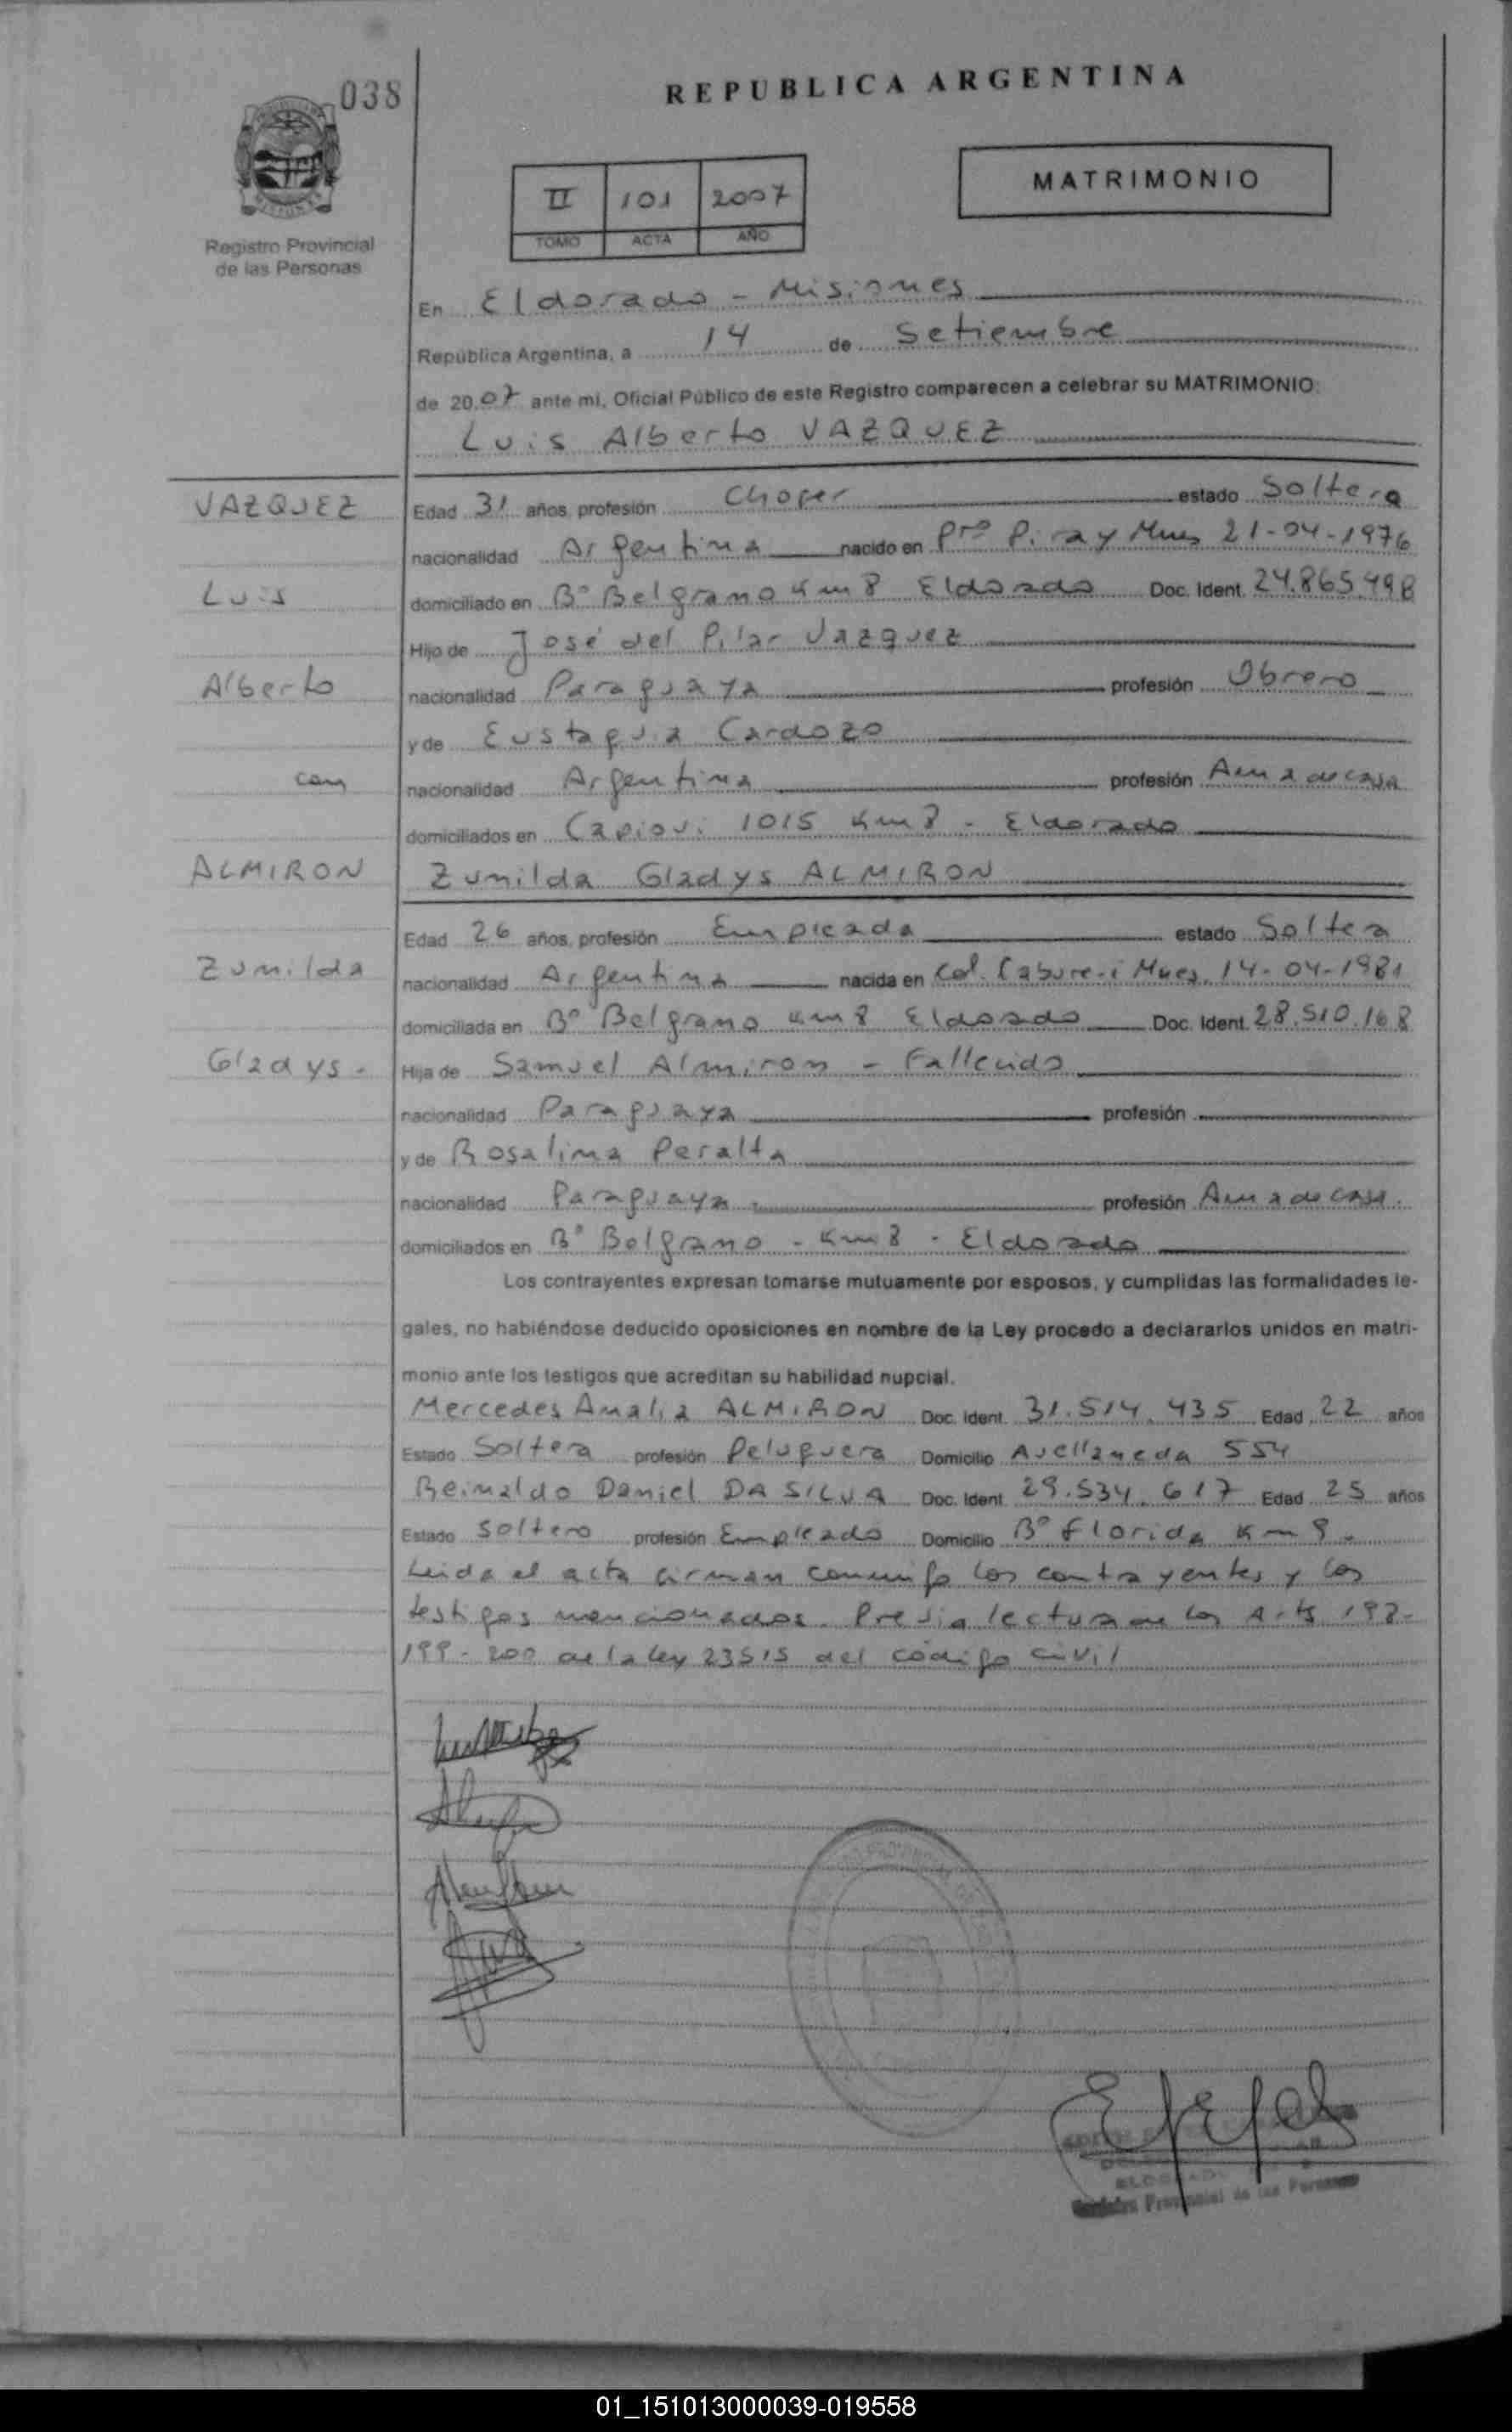 038
REPUBLICA ARGENTINA
MATRIMONIO
II 101 2007
TOMO ACTA AÑO
Registro Provincial
de las Personas
En Eldorado - Misiones
República Argentina, a 14 de Setiembre
de 2007 ante mi, Oficial Público de este Registro comparecen a celebrar su MATRIMONIO:
Luis Alberto VAZQUEZ
VAZQUEZ
Luis
Alberto
con
ALMIRON
Zunilda
Gladys -
Edad 31 años, profesión Chofer estado Soltero
nacionalidad Argentina nacido en Pto Piray Mnes 21-04-1976
domiciliado en Bº Belgrano Km 8 Eldorado Doc. Ident. 24.865.498
Hijo de José del Pilar Vazquez
nacionalidad Paraguaya profesión Obrero
y de Eustaquia Cardozo
nacionalidad Argentina profesión Ama de casa
domiciliados en Capiovi 1015 Km 8 - Eldorado
Zunilda Gladys ALMIRON
Edad 26 años, profesión Empleada estado Soltera
nacionalidad Argentina nacida en Col. Cabure-i Mnes, 14-04-1981
domiciliada en Bº Belgrano Km 8 Eldorado Doc. Ident. 28.510.168
Hija de Samuel Almiron - Fallecido
nacionalidad Paraguaya profesión
y de Rosalina Peralta
nacionalidad Paraguaya profesión Ama de casa.
domiciliados en Bº Belgrano - Km 8 - Eldorado
Los contrayentes expresan tomarse mutuamente por esposos, y cumplidas las formalidades le-
gales, no habiéndose deducido oposiciones en nombre de la Ley procedo a declararlos unidos en matri-
monio ante los testigos que acreditan su habilidad nupcial.
Mercedes Analia ALMIRON Doc. Ident. 31.514.435 Edad 22 años
Estado Soltera profesión Peluquera Domicilio Avellaneda 554
Reinaldo Daniel DA SILVA Doc. Ident. 29.534.617 Edad 25 años
Estado Soltero profesión Empleado Domicilio Bº Florida Km 9.
Leida el acta firman conmigo los contrayentes y los
testigos mencionados. Previa lectura de los Arts 198-
199-200 de la ley 23515 del código civil
Provincial de las Personas
01_151013000039-019558